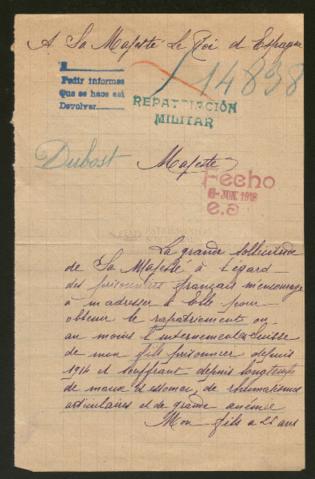 A Sa Majesté Le Roi d'Espagne
14838
Pedir informes
Que se hace así
Devolver
REPATRIACIÓN
MILITAR
Dubost
Majesté
Fecho
6-JUN. 1918
e.a
La grande sollicitude
de Sa Majesté à l'égard
des prisonniers français m'encourage
à m'adresser à Elle pour
obtenir le rapatriement ou
au moins l'internement en Suisse
de mon fils prisonnier depuis
1914 et souffrant depuis longtemps
de maux d'estomac, de rhumatismes
articulaires et de grande anémie
Mon fils a 22 ans